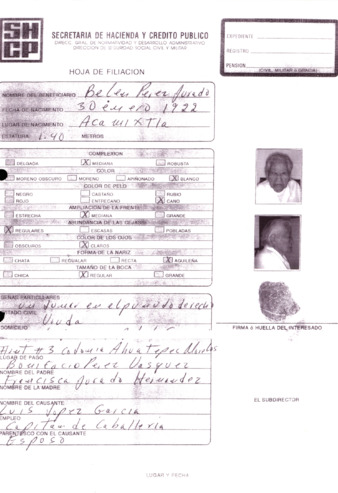 SHCP
SECRETARIA DE HACIENDA Y CREDITO PUBLICO
DIRECC. GRAL. DE NORMATIVIDAD Y DESARROLLO ADMINISTRATIVO
DIRECCION DE SEGURIDAD SOCIAL CIVIL Y MILITAR
EXPEDIENTE
REGISTRO
PENSION
(CIVIL, MILITAR O GRACIA)
HOJA DE FILIACION
NOMBRE DEL BENEFICIARIO Belen Perez Jurado
FECHA DE NACIMIENTO 30 enero 1922
LUGAR DE NACIMIENTO Acamixtla
ESTATURA 1.40 METROS
COMPLEXION
DELGADA X MEDIANA ROBUSTA
COLOR
MORENO OBSCURO MORENO APIÑONADO X BLANCO
COLOR DE PELO
NEGRO CASTAÑO RUBIO
ROJO ENTRECANO X CANO
AMPLIACION DE LA FRENTE
ESTRECHA X MEDIANA GRANDE
ABUNDANCIA DE LAS CEJAS
X REGULARES ESCASAS POBLADAS
COLOR DE LOS OJOS
OBSCUROS X CLAROS
FORMA DE LA NARIZ
CHATA REGULAR RECTA X AGUILEÑA
TAMAÑO DE LA BOCA
CHICA X REGULAR GRANDE
SEÑAS PARTICULARES
un tumor en el derecho
ESTADO CIVIL
Viuda
DOMICILIO
#3 Colonia
LUGAR DE PAGO
Bonifacio Perez Vasquez
NOMBRE DEL PADRE
Francisca Jurado Hernandez
NOMBRE DE LA MADRE
NOMBRE DEL CAUSANTE
Luis Lopez Garcia
EMPLEO
Capitan de Caballeria
PARENTESCO CON EL CAUSANTE
Esposo
FIRMA O HUELLA DEL INTERESADO
EL SUBDIRECTOR
LUGAR Y FECHA